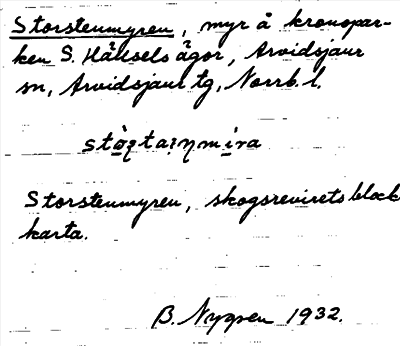 Storstenmyren, myr å kronopar-
ken S. Häusels ägor, Arvidsjaur
sn, Arvidsjaur tg, Norrb. l.
Storstenmyren, skogsrevirets block
karta.
B. Nygren 1932.